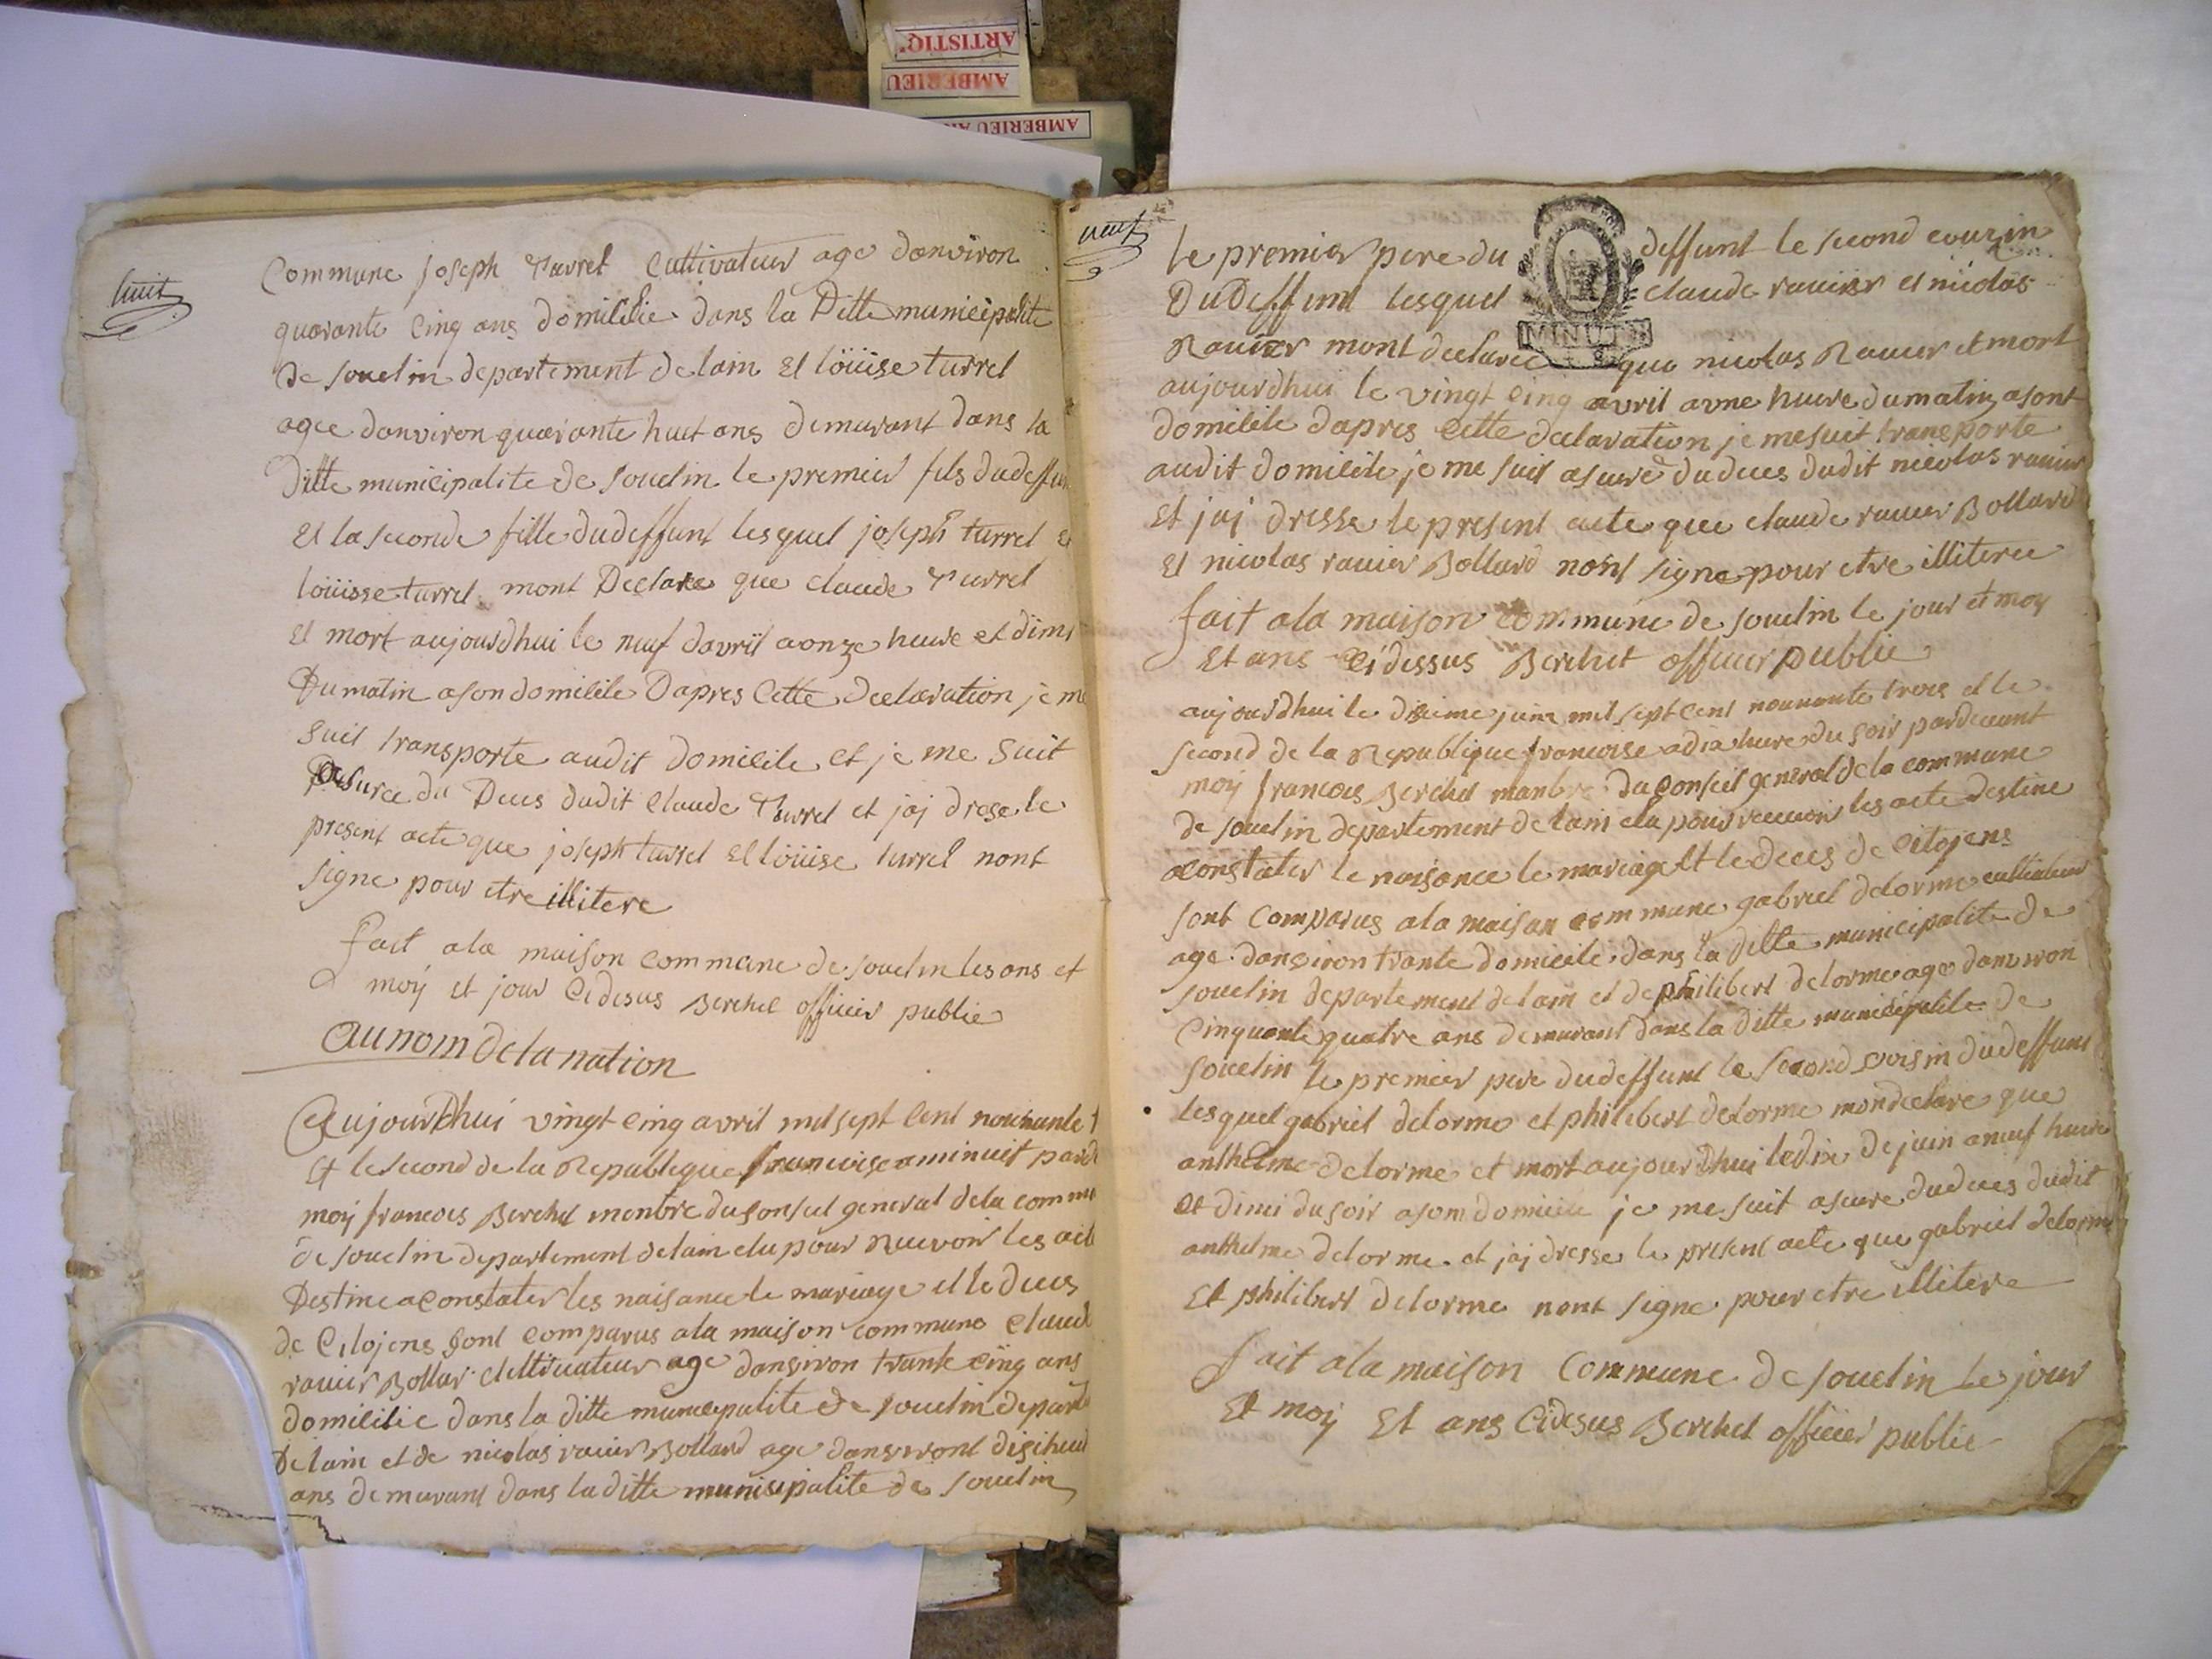 ARTISTIQ
AMBERIEU
AMBERIEU
huit
Commune joseph turrel Cultivateur age danviron
quarante cinq ans domicilie dans la Ditte municipalite
de souclin departement de lain et löüise turrel
agee danviron quarante huit ans demurant dans la
ditte municipalite de souclin le premier fils dudeffun
et la seconde fille dudeffunt lesquel joseph turrel e
löüisse turrel mont Declare que claude turrel
et mort aujourdhui le neuf davril a onze heure et dimi
Dumatin a son domicile Dapres Cette declaration je me
suit transporte audit domicile et je me suit
asuree du Deces dudit Claude turrel et jaj drese le
present acte que joseph turrel et löüise turrel nont
signe pour etre illitere
fait a la maison commune de souclin les ans et
moÿ et jour Cidesus Berchet officier public
Au nom de la nation
Aujourdhui vingt cinq avril mil sept cent nonnante t
et le second de la Republique francoise a minuit parde
moÿ francois Berchet menbre du consiel general de la commu
de souclin departement de lain elu pour Recevoir les acte
Destine a constater les naisance le mariage et le deces
de Citojens sont comparus a la maison commune claud
ravier Bollar cultivateur age danviron trante cinq ans
domicilie dans la ditte municipalite de souclin departe
De lain et de nicolas ravier Bollard age danviront disiheui
ans demurant dans la ditte municipalite de souclin
neuf
le premier pere du deffunt le second couzin
Dudeffunt lesquel claude ravier et nicolas
Ravier mont declaree que nicolas Ravier et mort
aujourdhui le vingt cinq avril a une heure du matin a sont
domicile dapres Cette declaration je me suit transporte
audit domicile je me suit asure du deces dudit nicolas ravier
et jaj dresse le present acte que claude ravier Bollard
et nicolas ravier Bollard nont signe pour etre illiteree
fait a la maison commune de souclin le jour et moy
et ans Cidessus Berchet officier public
MINUTE
aujourdhui le disieme juin mil sept cent nonnante trois et le
second de la Republique francoise a dix heure du soir pardevant
moÿ francois Berchet manbre du Conseil general de la commune
de souclin departement de lain elu pour recevoir les acte destine
a constater le naisance le mariage et le deces de Citojens
sont comparus a la maison commune gabriel delorme cultivateur
age danviron trante domicile dans la ditte municipalite de
souclin departement de lain et de philibert delorme age danviron
Cinquante quatre ans demurant dans la ditte municipalite de
souclin le premier pere dudeffunt le second voisin dudeffunt
lesquel gabriel delorme et philibert delorme mon declare que
anthelme delorme et mort aujourdhui le dix de juin a neuf heure
et dimi du soir a som domicile je me suit asure du deces dudit
anthelme delorme et jaj dresse le present acte que gabriel delorme
et philibert delorme nont signe pour etre illitere
fait a la maison Commune de souclin le jour
et moÿ et ans Cidesus Berchet officier public